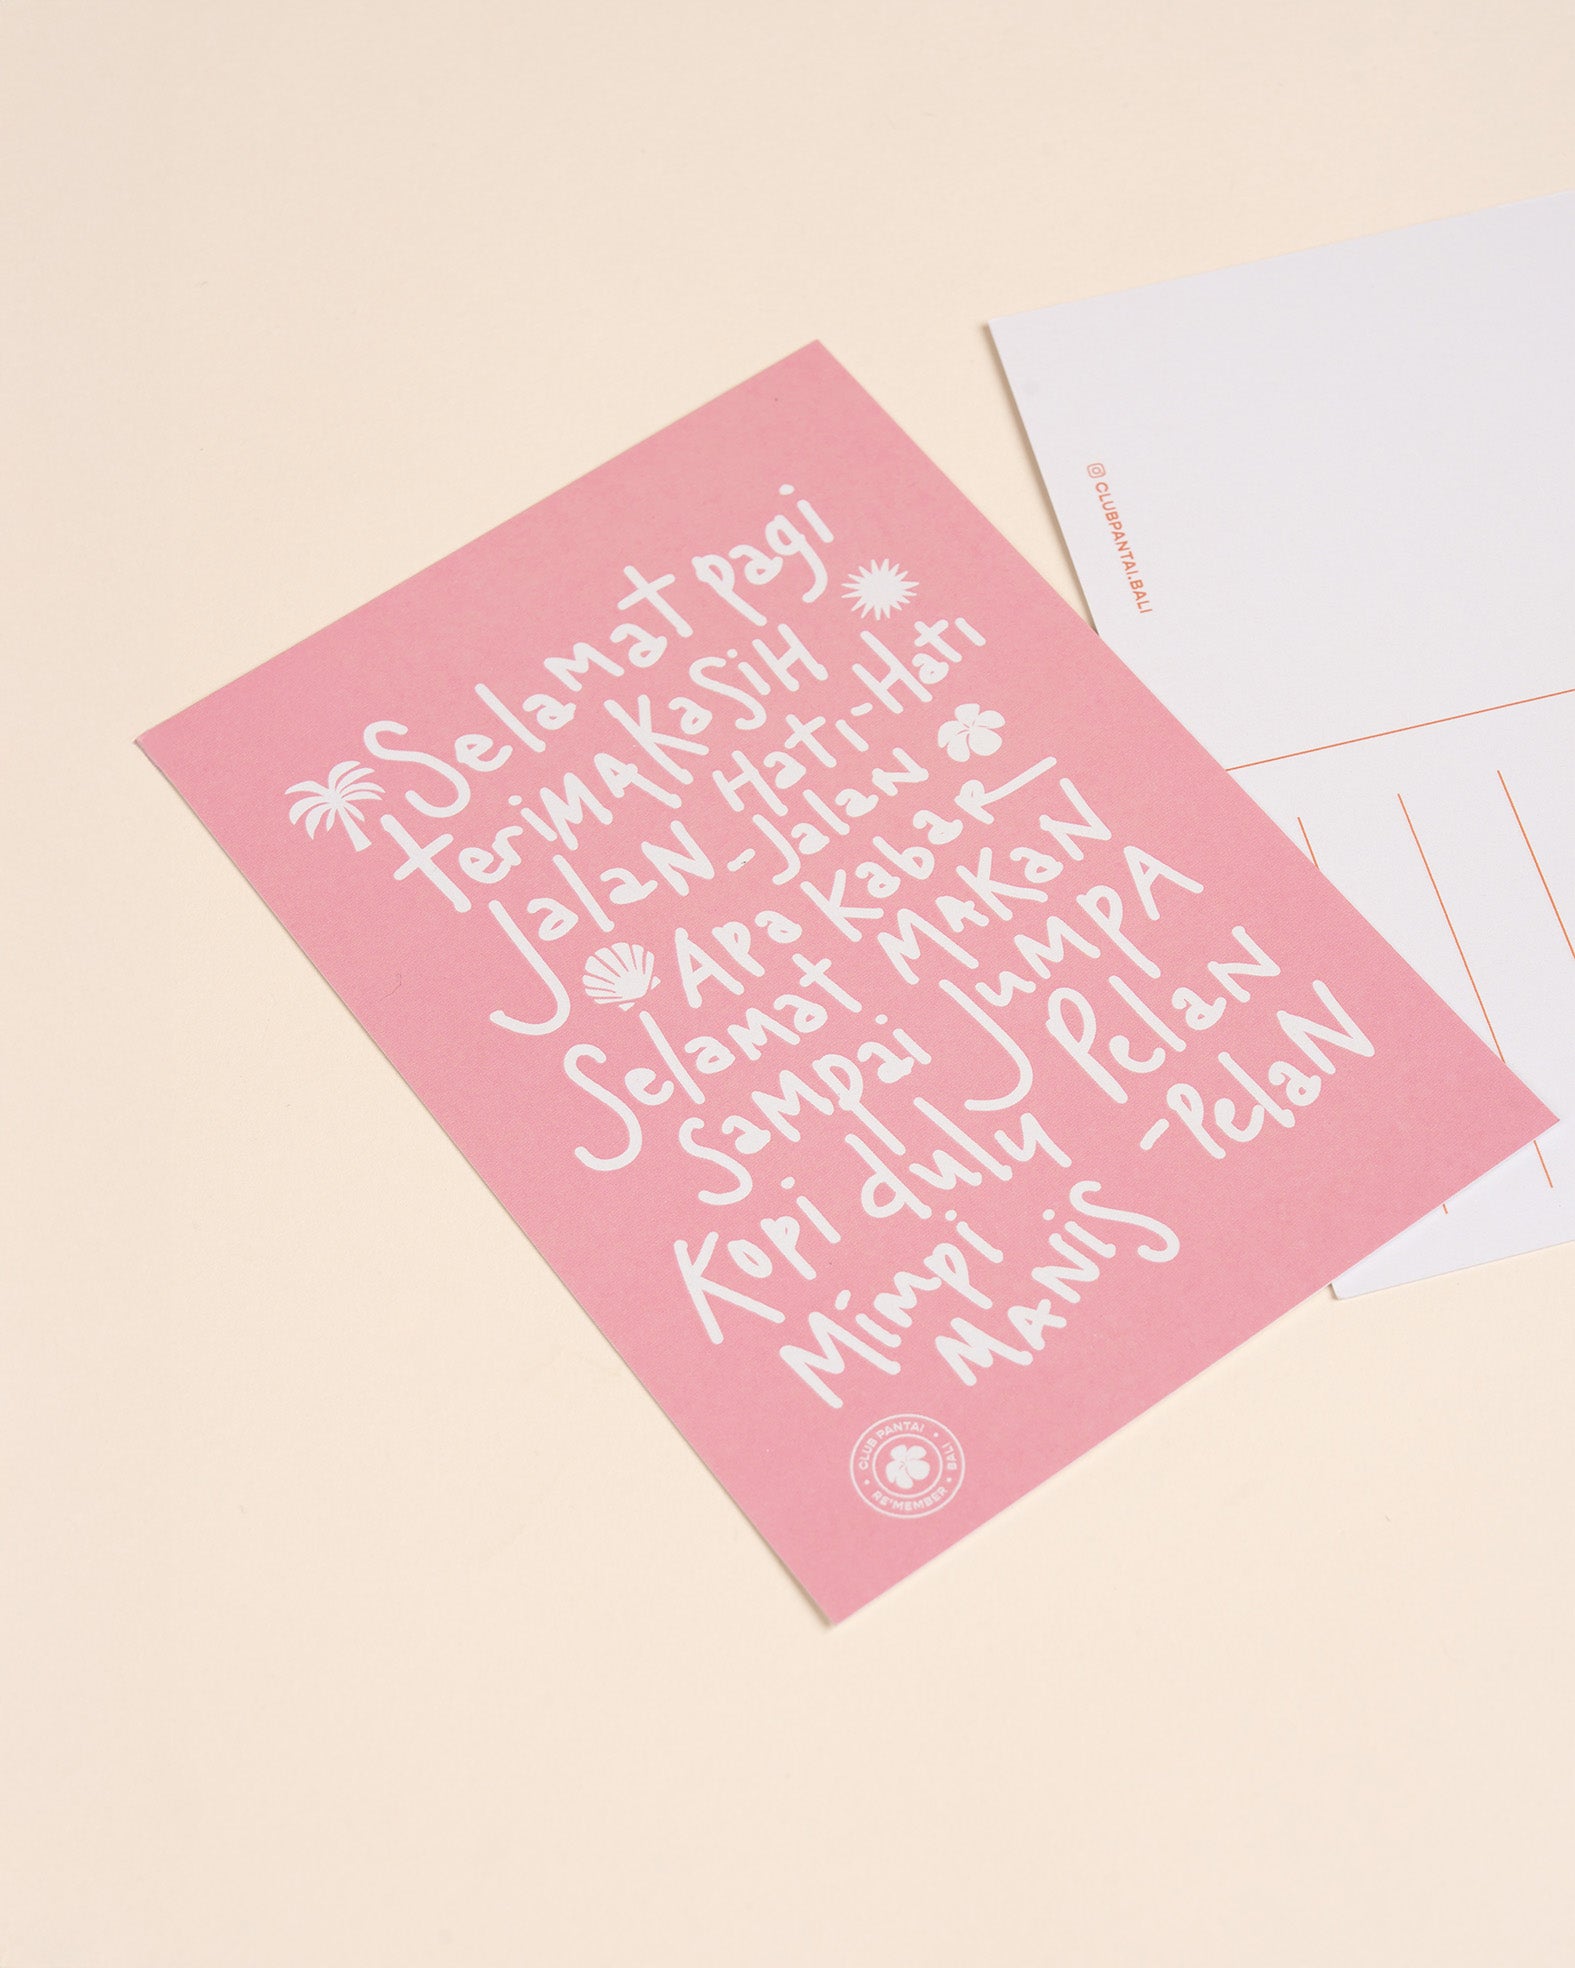 Selamat pagi
teriMAKaSiH
JalaN-Jalan Hati-Hati
Apa KabaR
Selamat MAKaN
SaMpai JuMPA
Kopi duly Pelan-PelaN
Mimpi MANiS
CLUB PANTAI • BALI • RE'MEMBER •
CLUBPANTAI.BALI